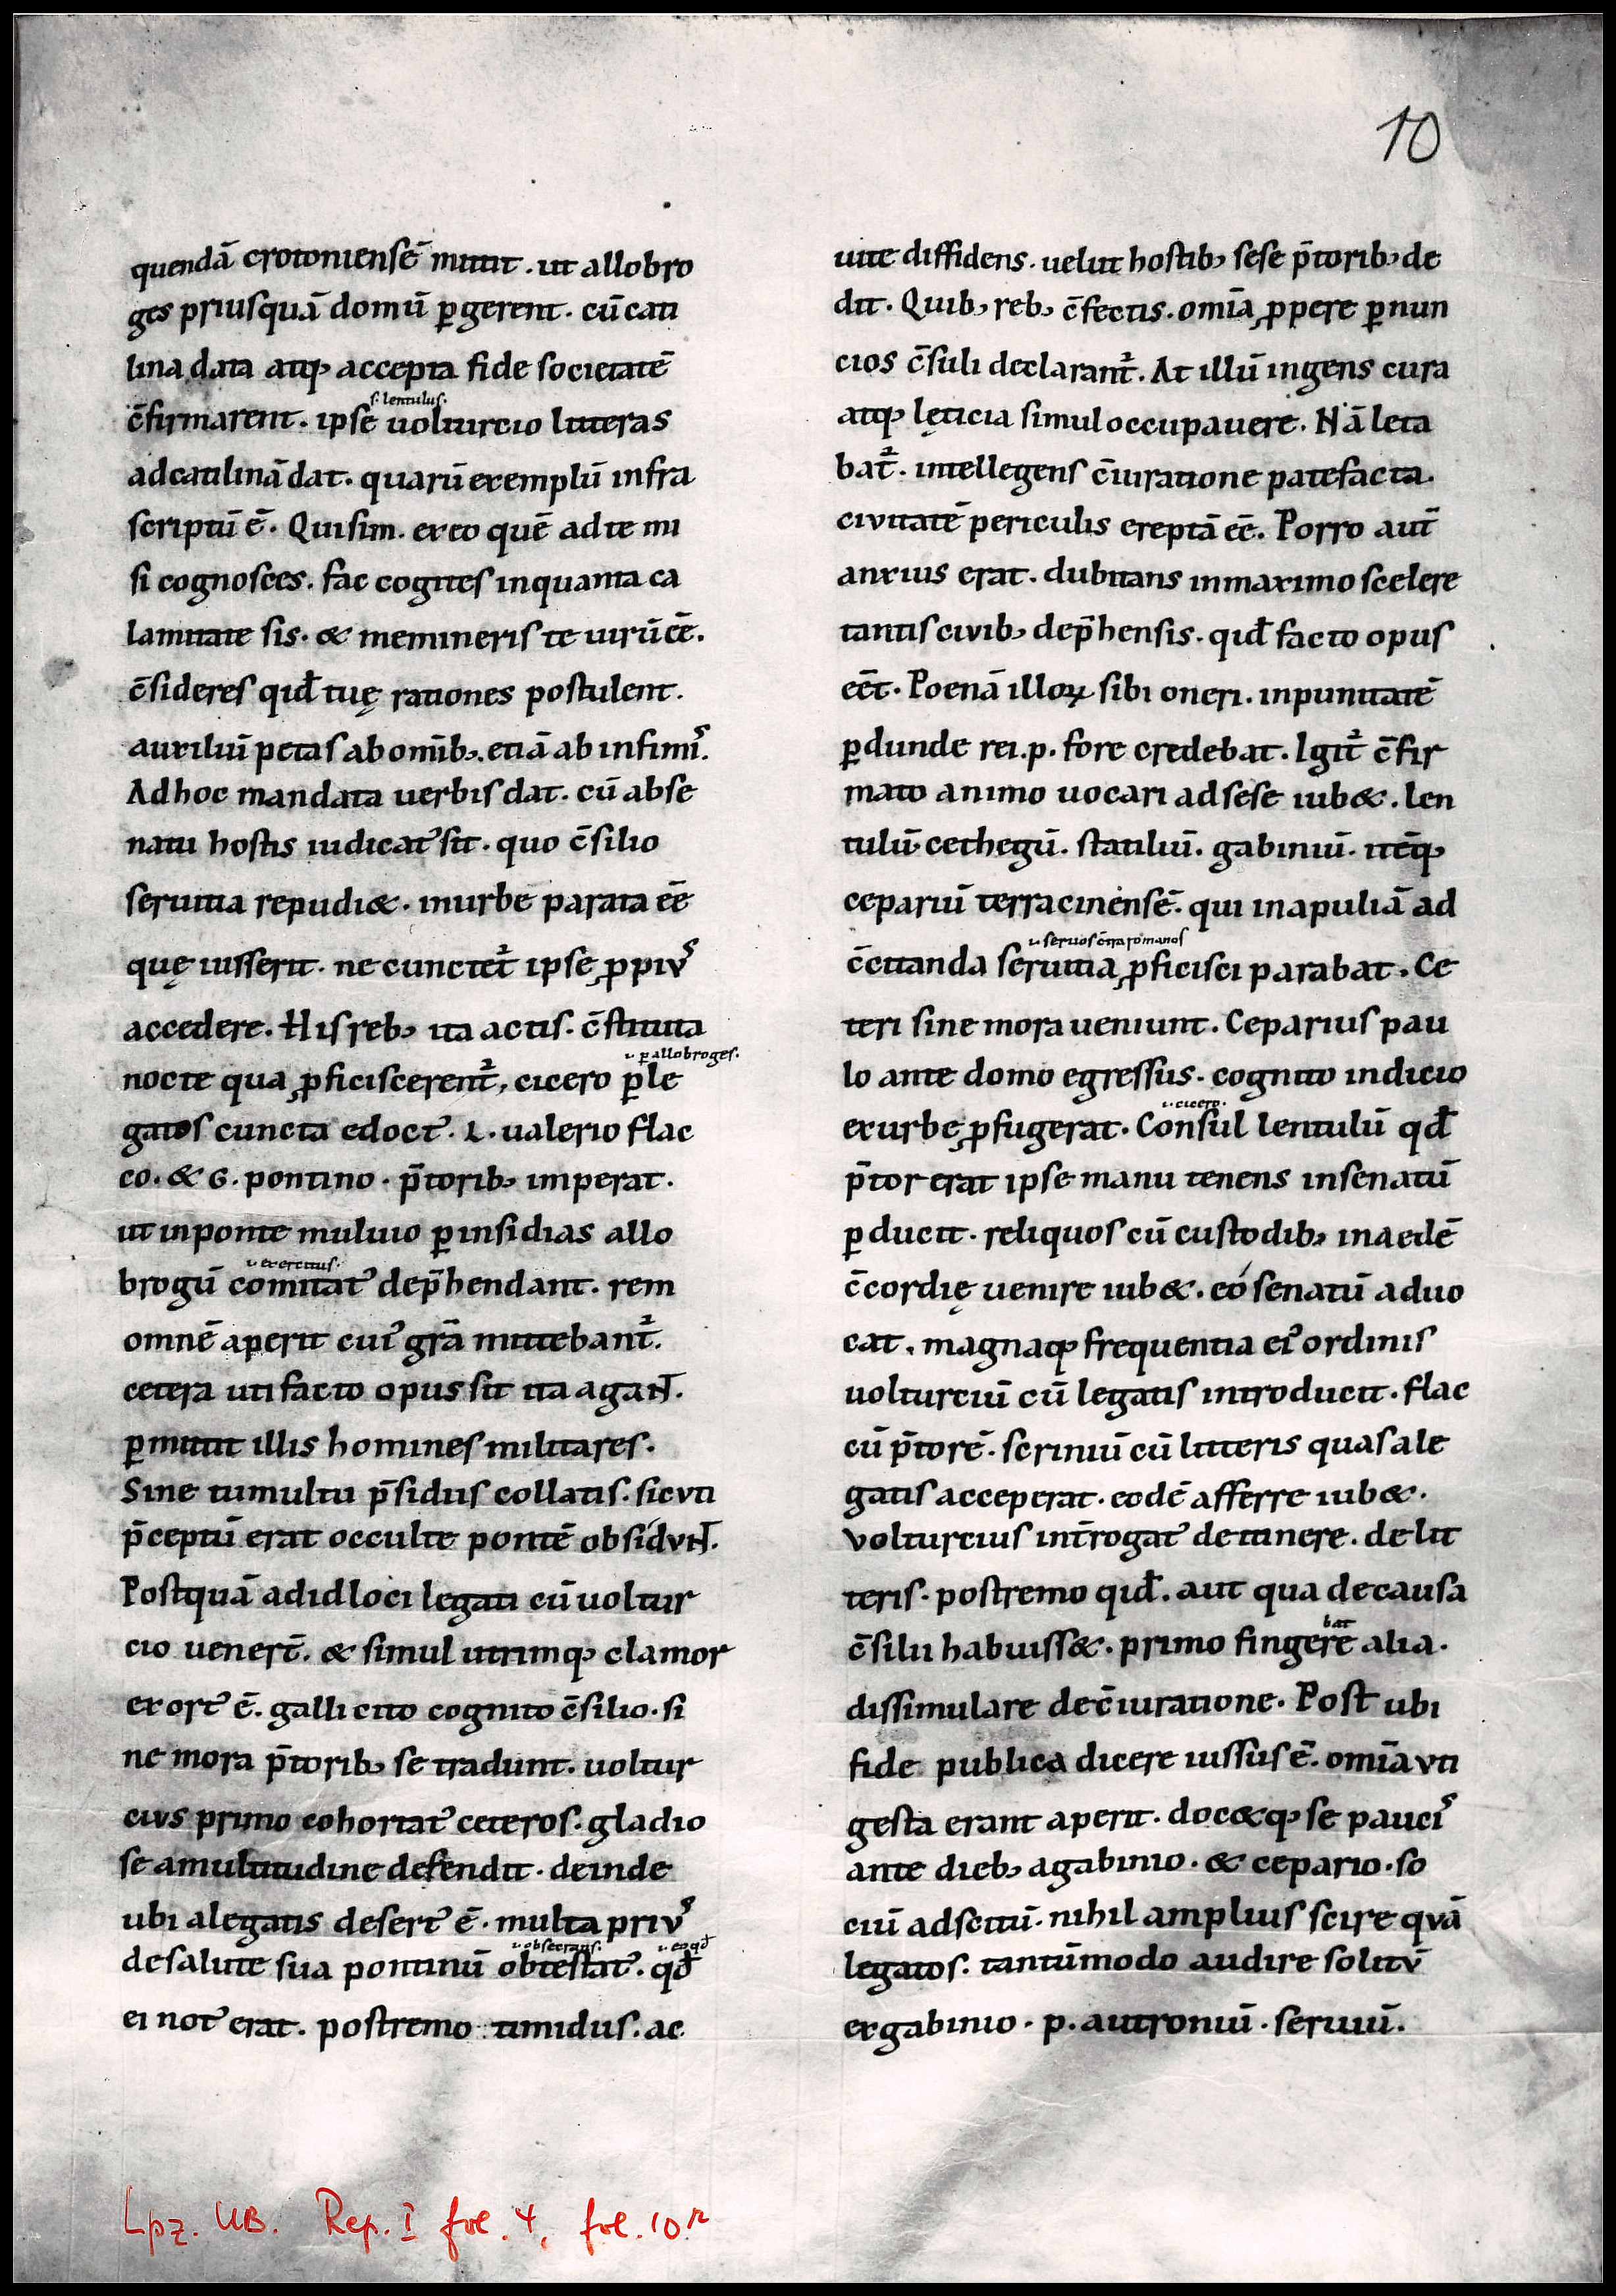 10
quendā crotoniensē mittit. ut allobro
ges priusquā domū ꝑgerent. cū cati
lina data atq; accepta fide societatē
s. lentulus.
c̄firmarent. ipse uolturcio litteras
ad catilinā dat. quarū exemplū infra
scriptū ē. Qui sim. ex eo quē ad te mi
si cognosces. fac cogites in quanta ca
lamitate sis. & memineris te uirū ēē.
c̄sideres qid̄ tuę rationes postulent.
auxiliū petas ab omīb; etiā ab infimis.
Ad hoc mandata uerbis dat. cū ab se
natu hostis iudicat᾽ sit. quo c̄silio
seruitia repudi&. in urbe parata ēē
quę iusserit. ne cunctet᷑ ipse ꝓpius
accedere. His reb; ita actis. c̄stituta
.i. ꝑ allobroges.
nocte qua ꝓficiscerent᷑, cicero ꝑ le
gatos cuncta edoct᾽. L. ualerio flac
co. & G. pontino. p̄torib; imperat.
ut in ponte muluio ꝑ insidias allo
.i. exercitus.
brogū comitat᾽ dep̄hendant. rem
omnē aperit cui᾽ grā mittebant᷑.
cetera uti facto opus sit ita agaNT.
ꝑmittit illis homines militares.
Sine tumultu p̄sidiis collatis. sicuti
p̄ceptū erat occulte pontē obsiduNT.
Postquā ad id loci legati cū uoltur
cio uenert̄. & simul utrimq; clamor
exort᾽ ē. galli cito cognito c̄silio. si
ne mora p̄torib; se tradunt. uoltur
cius primo cohortat᾽ ceteros. gladio
se a multitudine defendit. deinde
ubi a legatis desert᾽ ē. multa prius
.i. obsecrans. .i. eo qd̄
de salute sua pontinū obtestat᾽. qd̄
ei not᾽ erat. postremo timidus. ac
uite diffidens. uelut hostib; sese p̄torib; de
dit. Quib; reb; c̄fectis. omīa ꝓpere ꝑ nun
cios c̄suli declarant᷑. At illū ingens cura
atq; lęticia simul occupauere. Nā leta
bat᷑. intellegens c̄iuratione patefacta.
civitatē periculis ereptā ēē. Porro aut̄
anxius erat. dubitans in maximo scelere
tantis civib; dep̄hensis. qid̄ facto opus
ēēt. Poenā illoꝝ sibi oneri. inpunitatē
ꝑdunde rei. p. fore credebat. Igit᷑ c̄fir
mato animo uocari ad sese iub&. len
tulū cethegū. statiliū. gabiniū. itēq;
cepariū terracinensē. qui in apuliā ad
.i. seruos c̄tra romanos
c̄citanda seruitia ꝓficisci parabat. Ce
teri sine mora ueniunt. Ceparius pau
lo ante domo egressus. cognito indicio
.i. cicero.
ex urbe ꝓfugerat. Consul lentulū qd̄
p̄tor erat ipse manu tenens in senatū
ꝑducit. reliquos cū custodib; in aedē
c̄cordię uenire iub&. eó senatū aduo
cat. magnaq; frequentia ei᾽ ordinis
uolturciū cū legatis introducit. flac
cū p̄torē. scriniū cū litteris quas a le
gatis acceperat. eodē afferre iub&.
volturcius int̄rogat᾽ de itinere. de lit
teris. postremo qid̄. aut qua de causa
bat
c̄silii habuiss&. primo fingere alia.
dissimulare de c̄iuratione. Post ubi
fide publica dicere iussus ē. omīa uti
gesta erant aperit. doc&q; se paucis
ante dieb; a gabinio. & cepario. so
ciū adscitū. nihil amplius scire quā
legatos. tantūmodo audire solitū
ex gabinio. p. autroniū. seruiū.
Lpz. UB. Rep. I fol. 4, fol. 10r